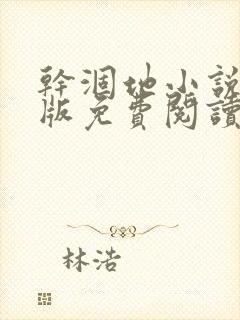 幹涸地小說
版免費閱讀
林浩